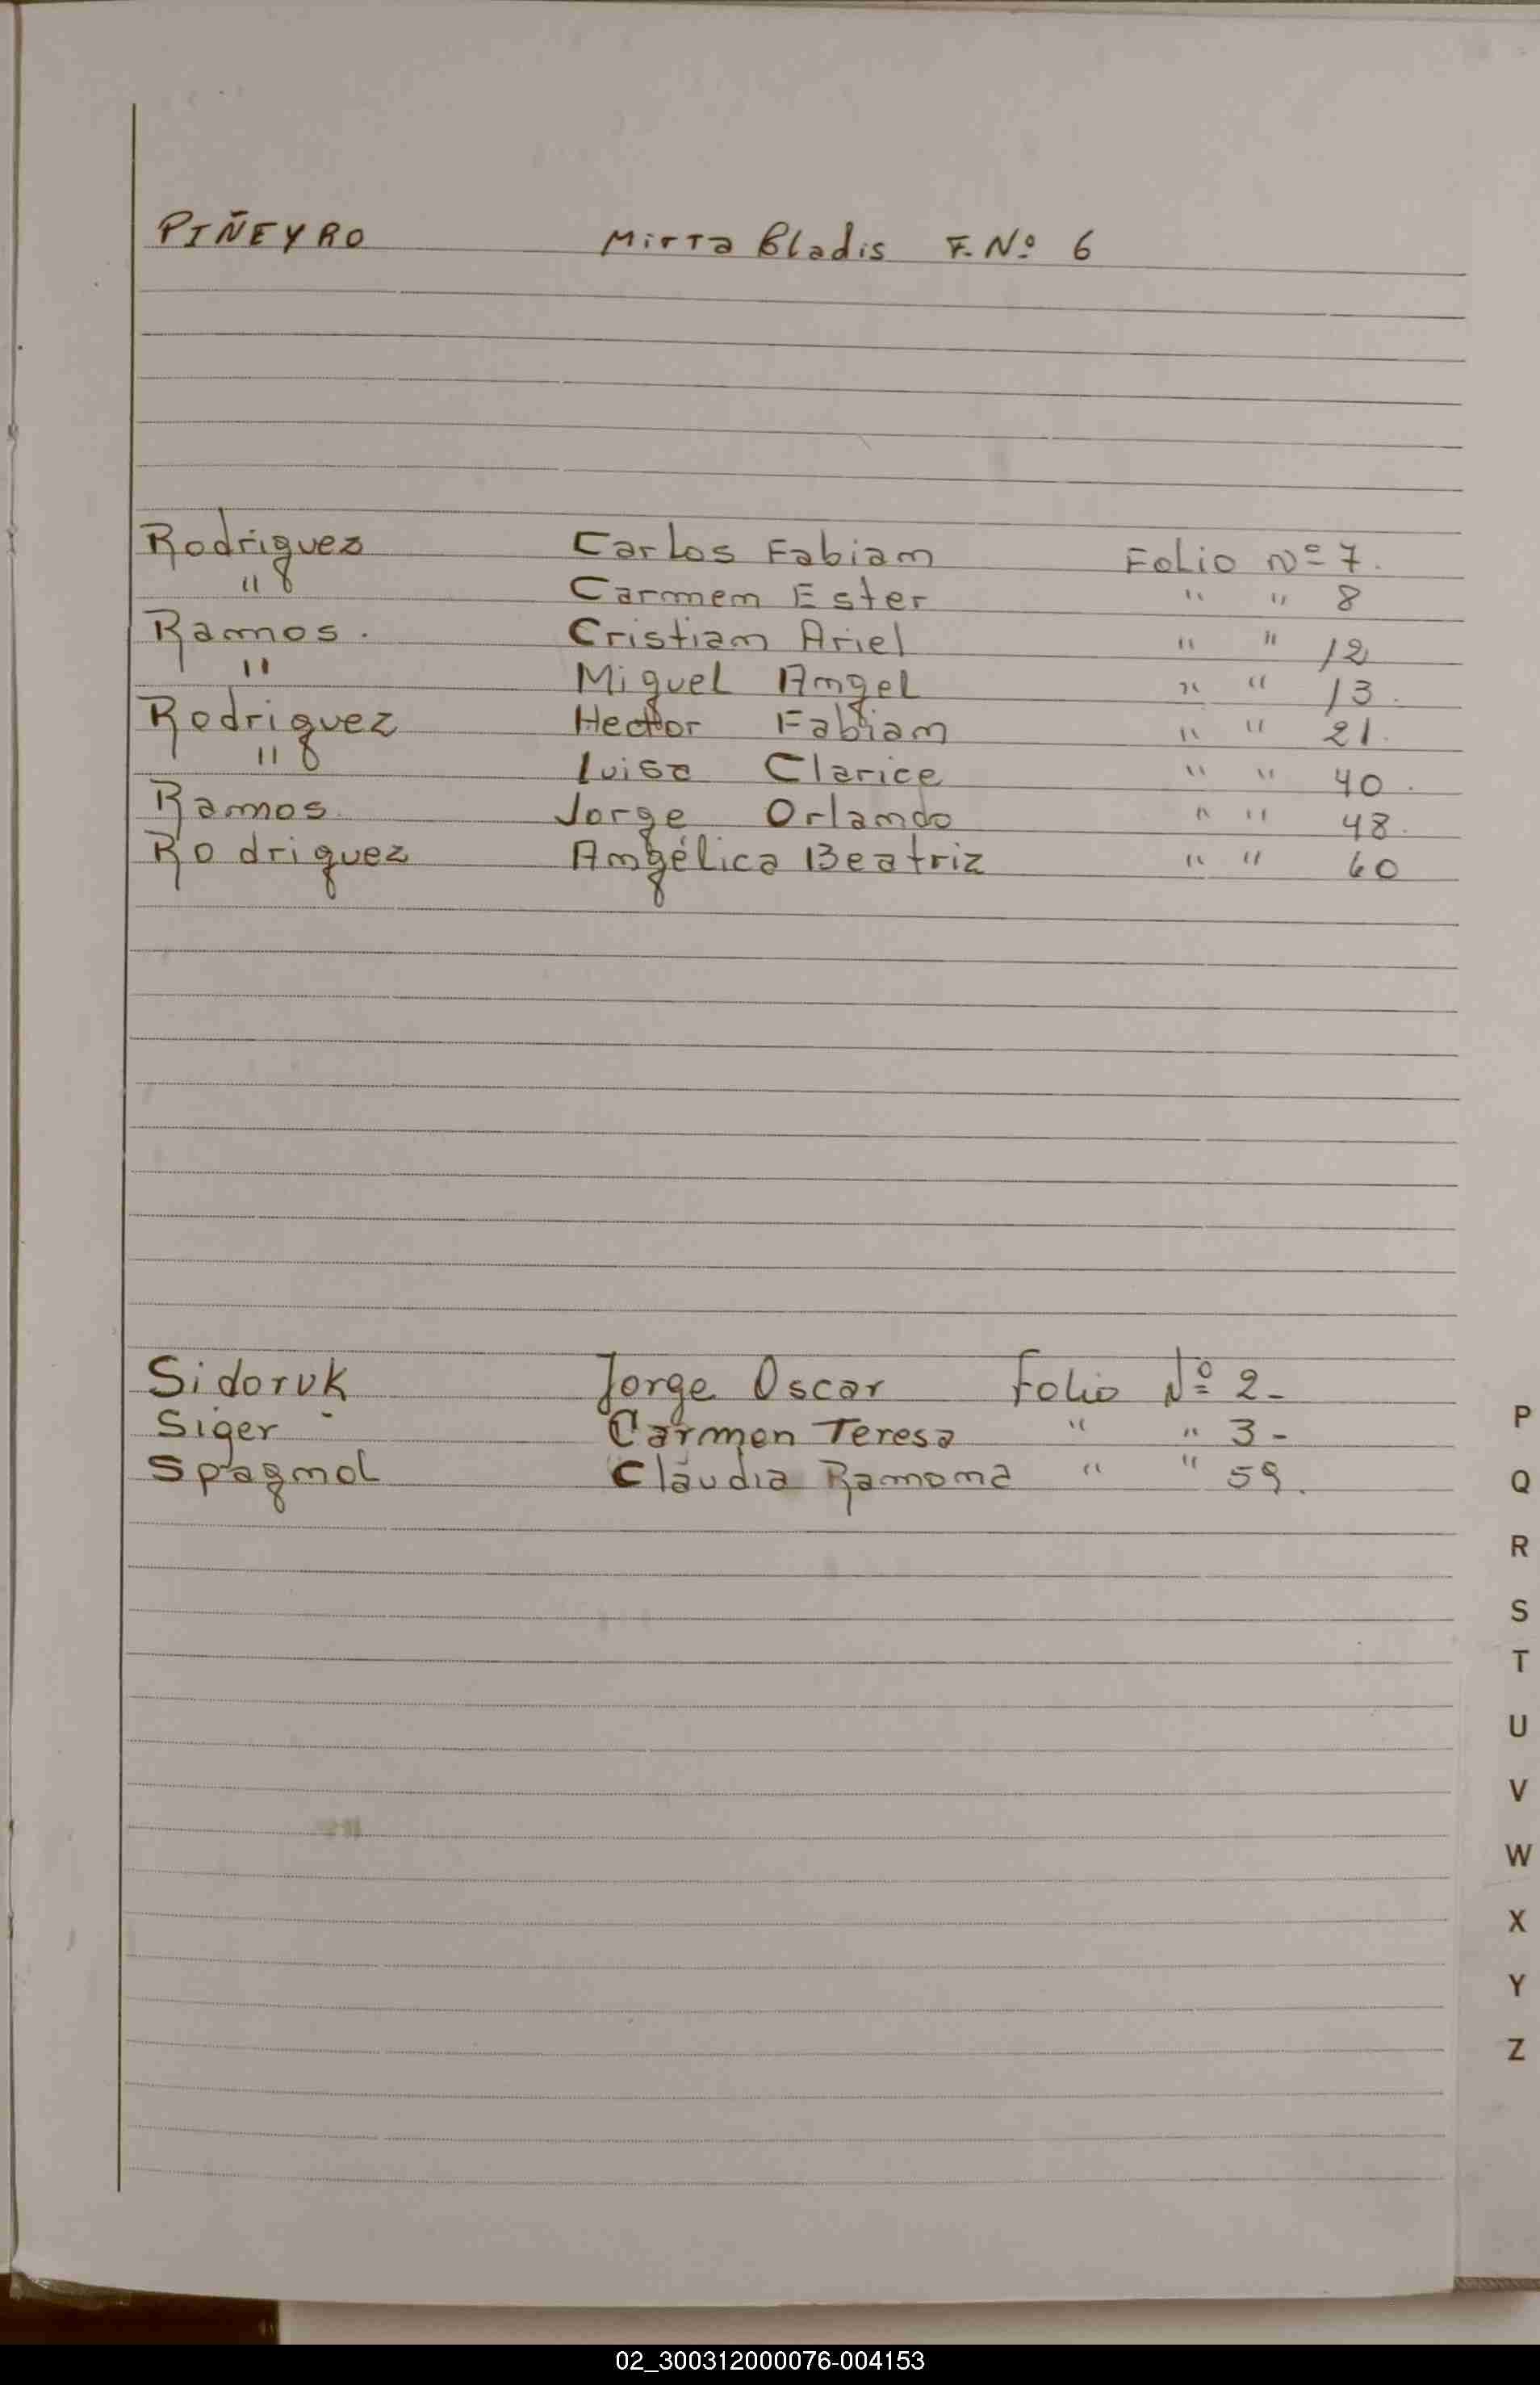 PIÑEYRO Mirta Gladis F. Nº 6
Rodriguez Carlos Fabian Folio Nº 7.
" Carmen Ester " " 8
Ramos. Cristian Ariel " " 12
" Miguel Angel " " 13.
Rodriguez Hector Fabian " " 21.
" Luisa Clarice " " 40.
Ramos. Jorge Orlando " " 48.
Rodriguez Angélica Beatriz " " 60
Sidoruk Jorge Oscar Folio Nº 2-
Siger - Carmen Teresa " " 3-
Spagnol Claudia Ramona " " 59.
P
Q
R
S
T
U
V
W
X
Y
Z
02_300312000076-004153